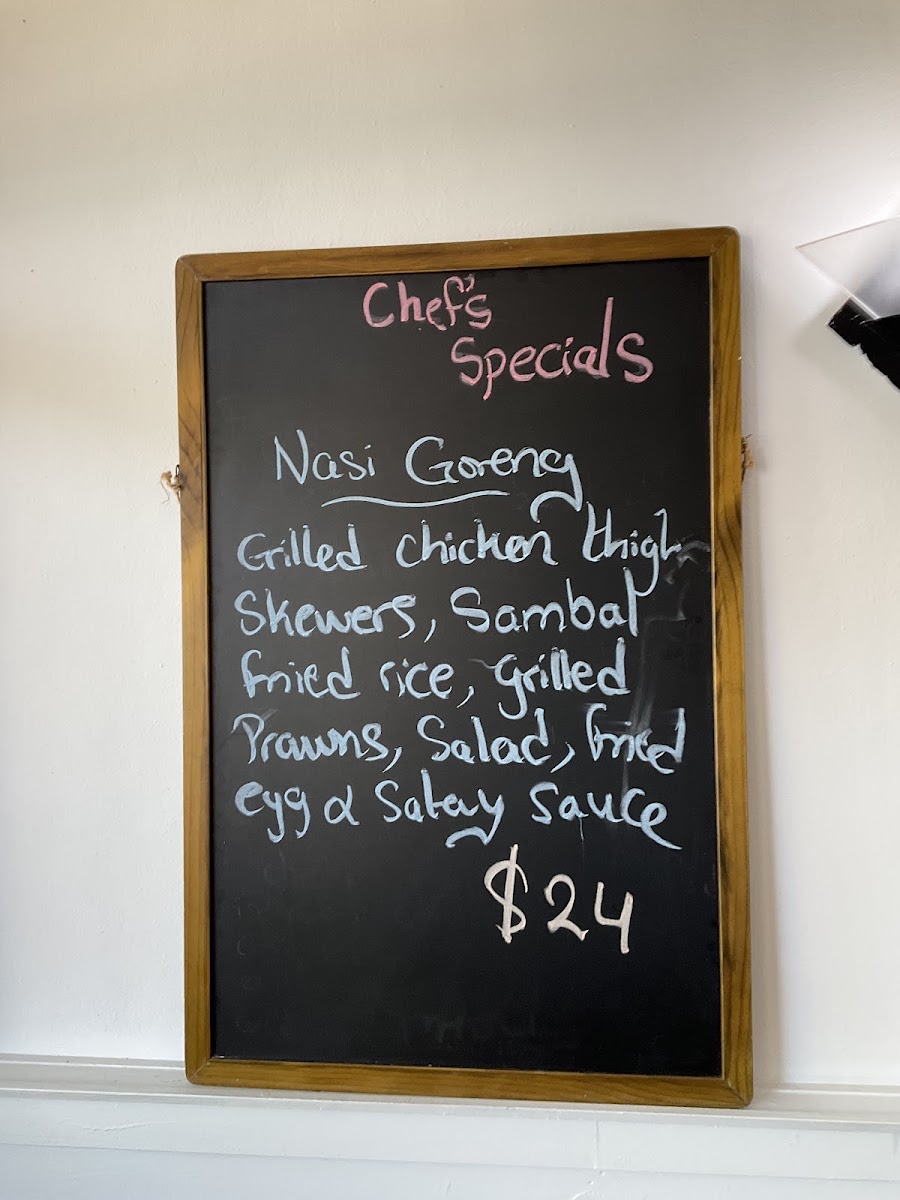 Chef's
Specials
Nasi Goreng
Grilled chicken thigh
Skewers, Sambal
fried rice, grilled
Prawns, Salad, fried
egg & Satay Sauce
$24